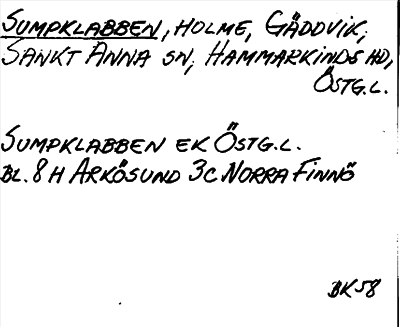 SUMPKLABBEN, HOLME, GÄDDVIK,
SANKT ANNA SN, HAMMARKINDS HD,
ÖSTG.L.
SUMPKLABBEN EK ÖSTG.L.
BL. 8 H ARKÖSUND 3C NORRA FINNÖ
BK58